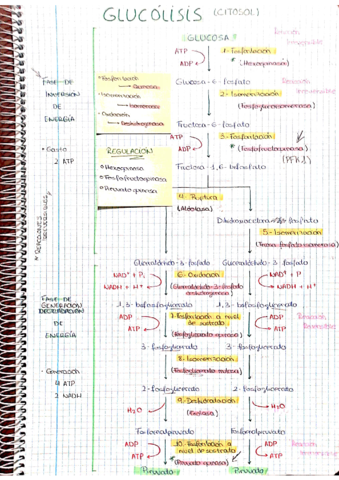 GLUCÓLISIS (CITOSOL)
GLUCOSA
Reacción
Irreversible
ATP
ADP
1. Fosforilación
(Hexoquinasa)
FASE DE
INVERSIÓN
DE
ENERGÍA
• Fosforilación
→ Quinasas
• Isomerización
→ Isomerasas
• Oxidación
→ Deshidrogenasa
Glucosa-6-fosfato
2. Isomerización
(Fosfoglucoisomerasa)
Fructosa-6-fosfato
• Gasto
2 ATP
ATP
ADP
3. Fosforilación
(Fosfofructoquinasa)
(PFK1)
REGULACIÓN
• Hexoquinasa
• Fosfofructoquinasa
• Piruvato quinasa
Fructosa-1,6-bifosfato
4. Ruptura
(Aldolasa)
* REACCIONES
IRREVERSIBLES
Dihidroxiacetona fosfato
5. Isomerización
(Triosa fosfato isomerasa)
Gliceraldehído-3-fosfato
Gliceraldehído-3-fosfato
NAD⁺ + Pi
NADH + H⁺
6. Oxidación
(Gliceraldehído-3-fosfato
deshidrogenasa)
NAD⁺ + Pi
NADH + H⁺
FASE DE
GENERACIÓN
DE
ENERGÍA
1,3-bifosfoglicerato
1,3-bifosfoglicerato
ADP
ATP
7. Fosforilación a nivel
de sustrato
(Fosfoglicerato quinasa)
ADP
ATP
Reacción
Reversible
3-fosfoglicerato
3-fosfoglicerato
• Generación
4 ATP
2 NADH
8. Isomerización
(Fosfoglicerato mutasa)
2-fosfoglicerato
2-fosfoglicerato
H₂O
9. Deshidratación
(Enolasa)
H₂O
Fosfoenolpiruvato
Fosfoenolpiruvato
ADP
ATP
10. Fosforilación a
nivel de sustrato
(Piruvato quinasa)
ADP
ATP
Piruvato
Piruvato